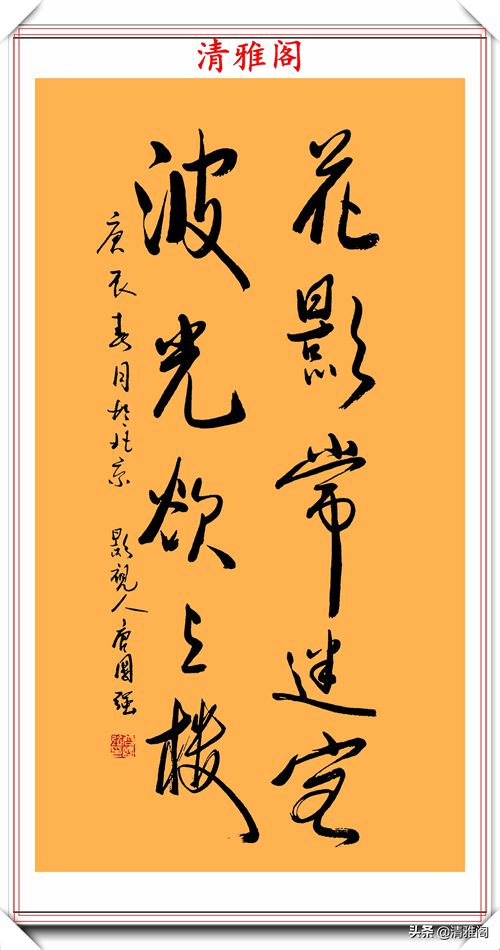 清雅阁
花影常迷客
波光欲上楼
庚辰春月於北京 影視人唐國强
头条 @清雅阁